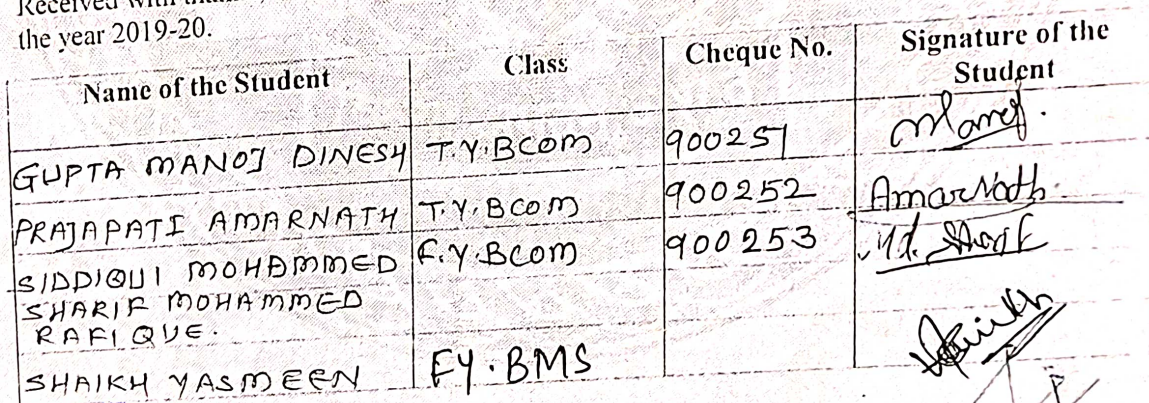 Received with
the year 2019-20.
Name of the Student Class Cheque No. Signature of the Student
GUPTA MANOJ DINESH T.Y.BCOM 900251 Manoj.
PRAJAPATI AMARNATH T.Y.BCOM 900252 AmarNath.
SIDDIQUI MOHAMMED F.Y.BCOM 900253 Md. Sharif
SHARIF MOHAMMED
RAFIQUE.
SHAIKH YASMEEN F.Y.BMS Shaikh